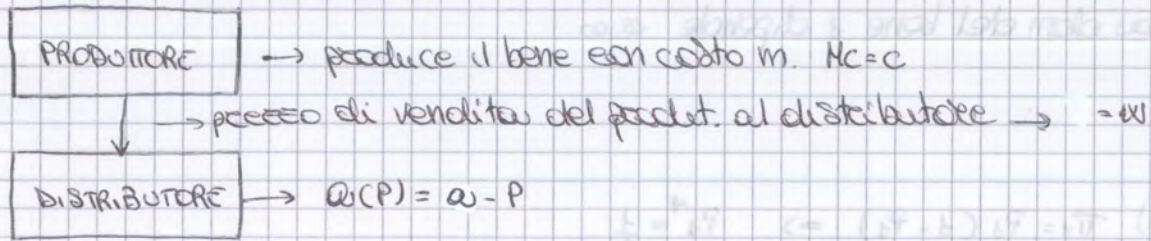 PRODUTTORE → produce il bene con costo m. MC=c
→ prezzo di vendita del produt. al distributore → = w
DISTRIBUTORE → Q(P) = a - P